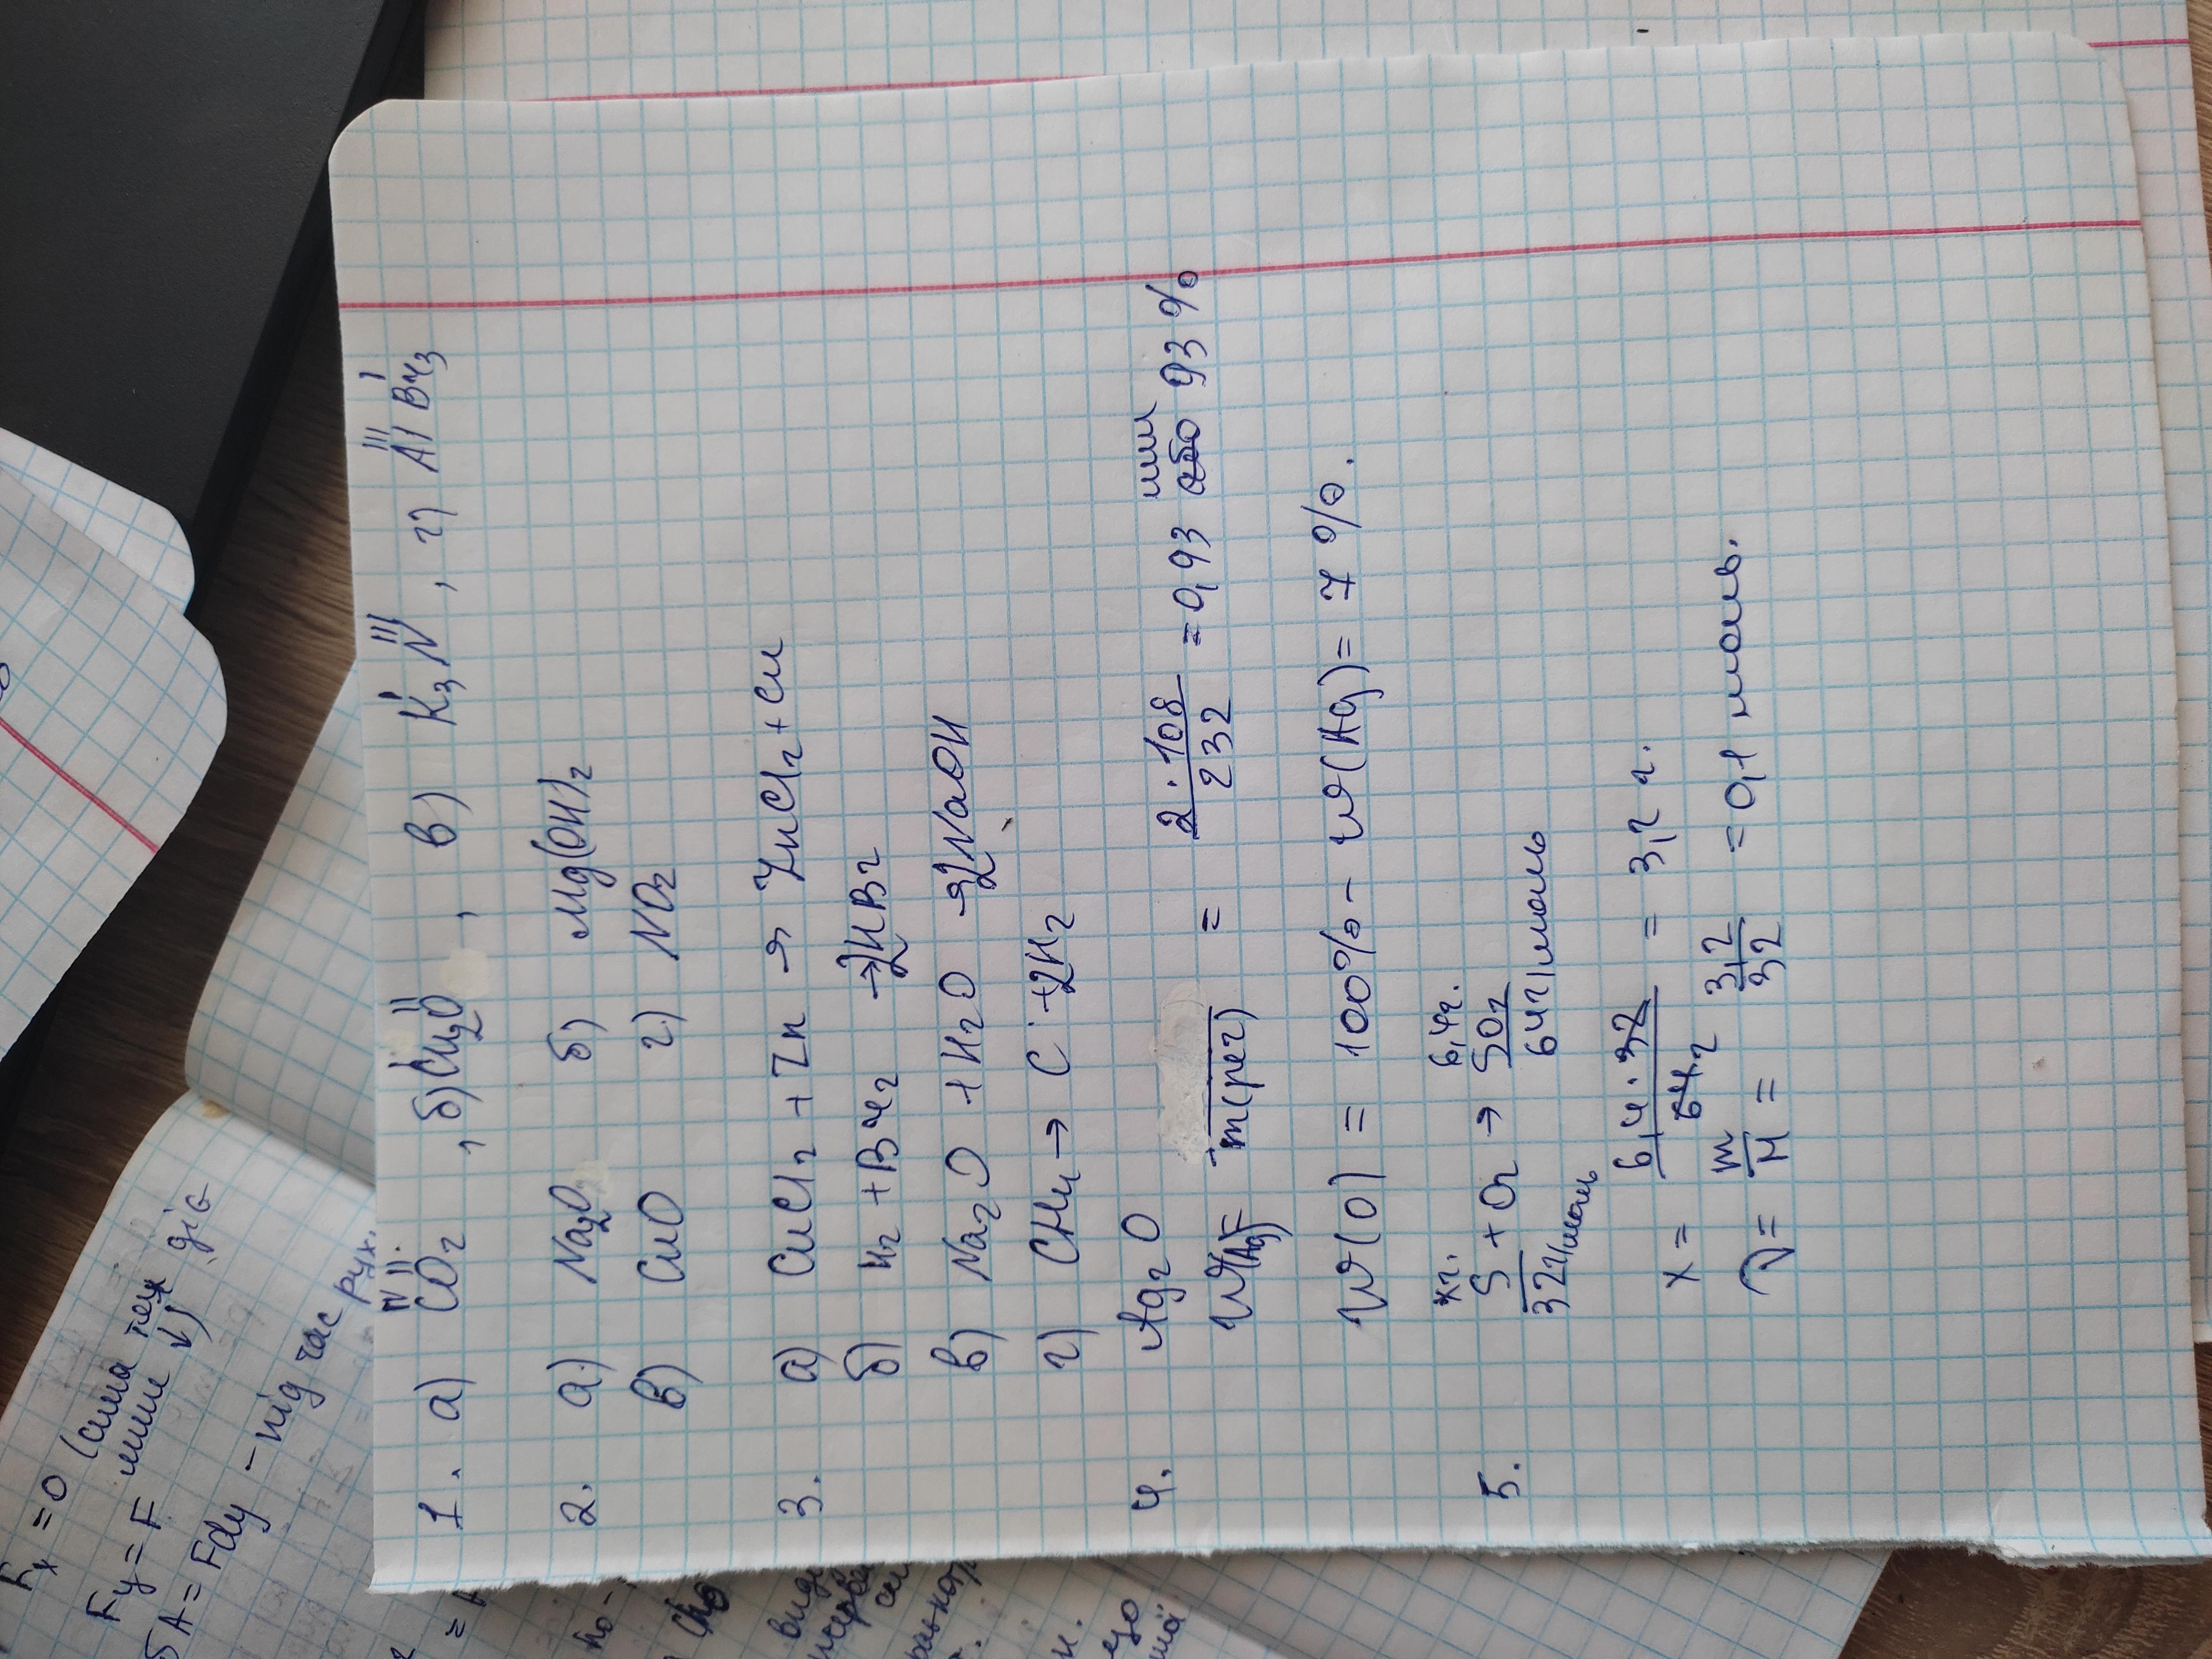 1. а) C^{IV}O^{II}₂, б) Cu^{I}₂O^{II}, в) K^{I}₃N^{III}, г) Al^{III}Br^{I}₃
2. а) Na₂O б) Mg(OH)₂
в) CuO г) NO₂
3. а) CuCl₂ + Zn → ZnCl₂ + Cu
б) H₂ + Br₂ → 2HBr
в) Na₂O + H₂O → 2NaOH
г) CH₄ → C + 2H₂
4. Ag₂O
W(Ag) = / m(реч) = 2 · 108 / 232 = 0,93 или ~~або~~ 93 %
W(O) = 100% - W(Ag) = 7 %.
5. xг. 6,4г.
S + O₂ → SO₂
32г/моль 64г/моль
x = 6,4 · 32 / 64 2 = 3,2 г.
ν = m / M = 3,2 / 32 = 0,1 моль.
Fx = 0 (сила теж діє
Fy = F лише ↓)
δA = Fdy - під час рух.